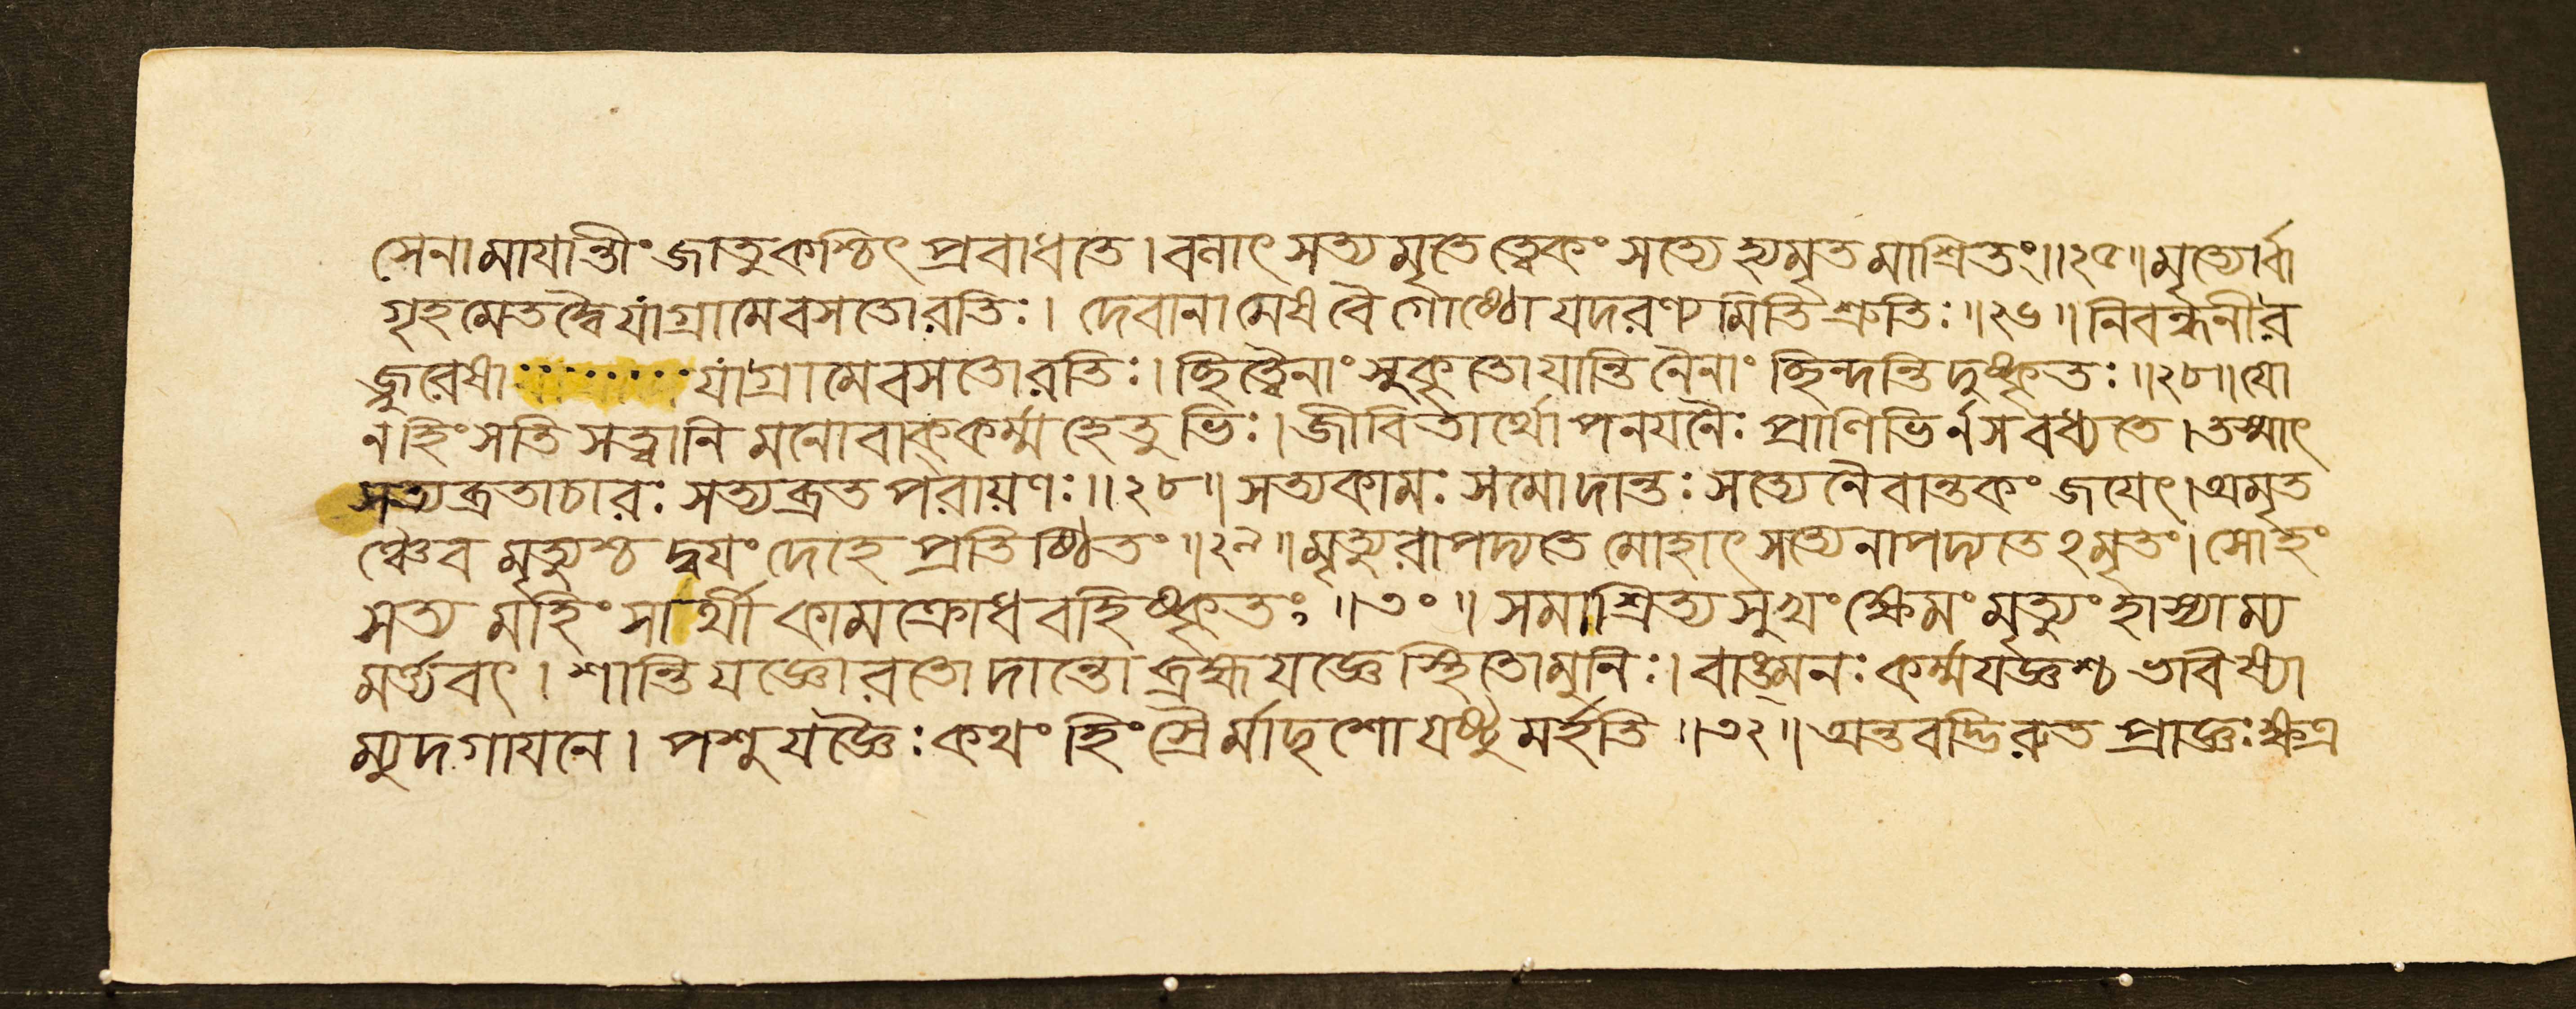 সেনামাযান্তীং জাতুকশ্চিৎ প্রবাধতে। বনাৎ সত্যমৃতে ত্বেকং সত্যে হ্যমৃতমাশ্রিতং॥২৫॥ মৃত্যোর্বা
গৃহমেতদ্বৈ যা গ্রামে বসতো রতিঃ। দেবানামেষ বৈ গোষ্ঠো যদরণ্যমিতি শ্রুতিঃ॥২৬॥ নিবন্ধনী র
জ্জুরেষা যা গ্রামে বসতো রতিঃ। ছিত্ত্বৈনাং সুকৃতো যান্তি নৈনাং ছিন্দন্তি দুষ্কৃতঃ॥২৮॥ যো
ন হিংসতি সত্ত্বানি মনোবাক্কর্ম্মহেতুভিঃ। জীবিতার্থোপনযনৈঃ প্রাণিভির্ন স বধ্যতে। তস্মাৎ
সত্যব্রতাচারঃ সত্যব্রতপরায়ণঃ॥২৮॥ সত্যকামঃ সমো দান্তঃ সত্যেনৈবান্তকং জযেৎ। অমৃত
ঞ্চৈব মৃত্যুশ্চ দ্বযং দেহে প্রতিষ্ঠিতং॥২৯॥ মৃত্যুরাপদ্যতে মোহাৎ সত্যেনাপদ্যতেঽমৃতং। সোহং
সত্যমহিংসার্থী কামক্রোধবহিষ্কৃতঃ॥৩০॥ সমাশ্রিত্য সুখং ক্ষেমং মৃত্যুং হাস্যাম্য
মর্ত্ত্যবৎ। শান্তিযজ্ঞো রতো দান্তো ব্রহ্মযজ্ঞে স্থিতো মুনিঃ। বাঙ্মনঃকর্ম্মযজ্ঞশ্চ ভবিষ্যা
ম্যুদগাযনে। পশুযজ্ঞৈঃ কথং হিংস্রৈর্মাদৃশো যষ্টুমর্হতি॥৩২॥ অন্তবদ্ভিরুত প্রাজ্ঞঃ ক্ষেত্র